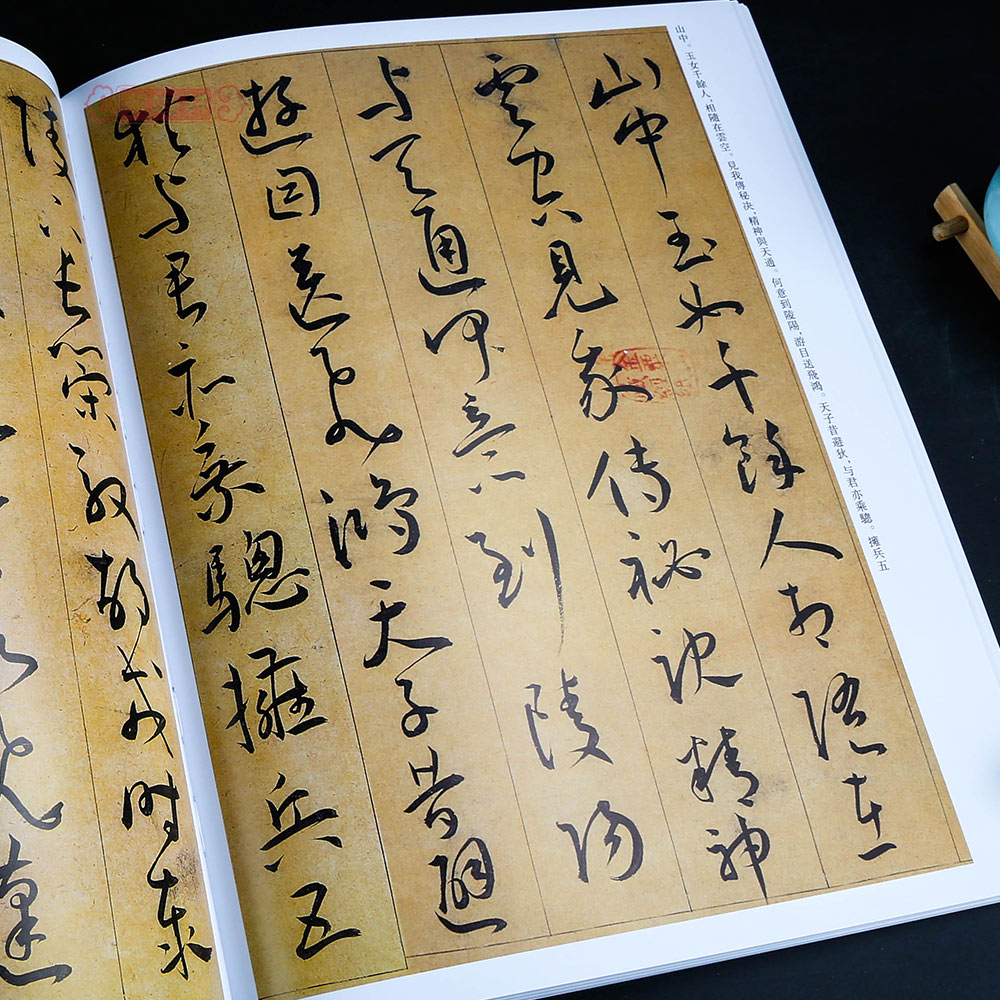 山中。玉女千餘人，相隨在雲空。見我傳秘决，精神與天通。何意到陵陽，游目送飛鴻。天子昔避狄，与君亦乘驄。擁兵五
山中玉女千餘人相隨在
雲空見我傳祕訣精神
与天通何意到陵陽
遊目送飛鴻天子昔避
狄与君亦乘驄擁兵五
陵下長策馭胡戎時泰